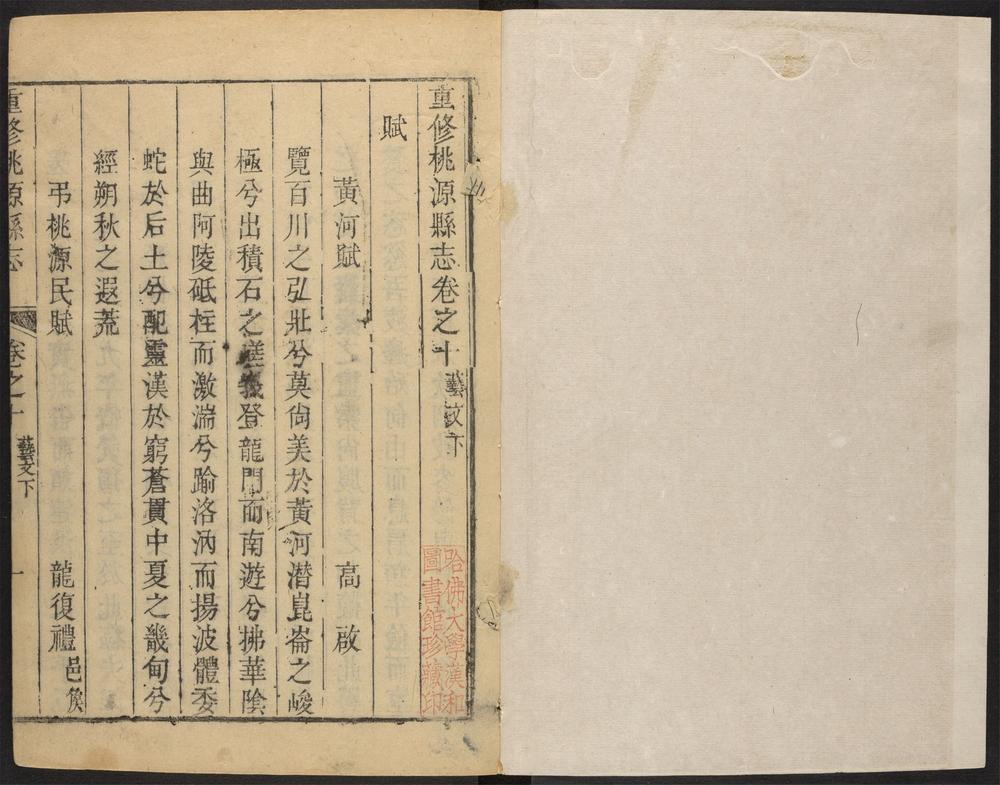 重修桃源縣志卷之十 藝文下
賦
黃河賦 高啟
覽百川之弘壯兮莫尙美於黃河潛崑崙之峻
極兮出積石之嵯峩登龍門而南遊兮拂華陰
與曲阿陵砥柱而激湍兮踰洛汭而揚波體委
蛇於后土兮配靈漢於窮蒼貫中夏之畿甸兮
經朔秋之遐荒
弔桃源民賦 龍復禮 邑矦
重修桃源縣志 卷之十 藝文下 一
哈佛大學漢和
圖書館珍藏印